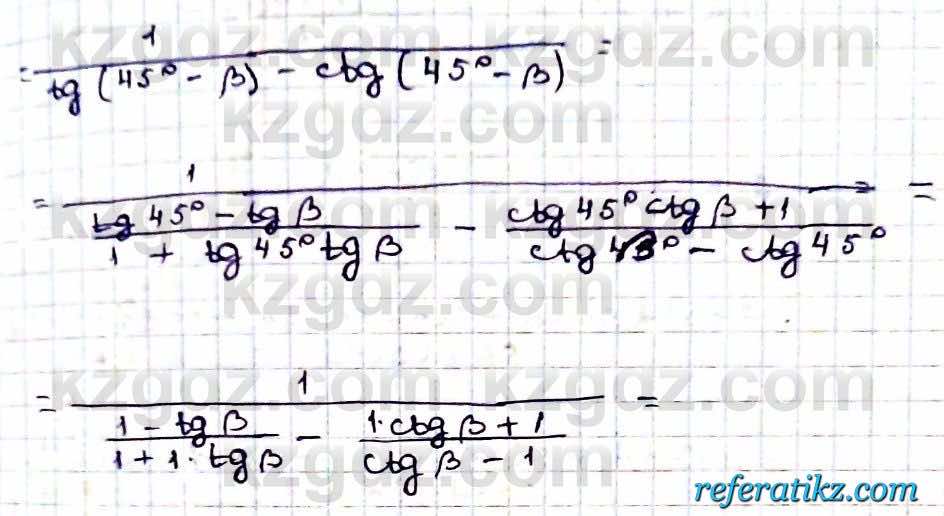 = 1 / (tg (45° - β) - ctg (45° - β)) =
= 1 / ((tg 45° - tg β) / (1 + tg 45° tg β) - (ctg 45° ctg β + 1) / (ctg β - ctg 45°)) =
= 1 / ((1 - tg β) / (1 + 1 · tg β) - (1 · ctg β + 1) / (ctg β - 1)) =
kzgdz.com
referatikz.com